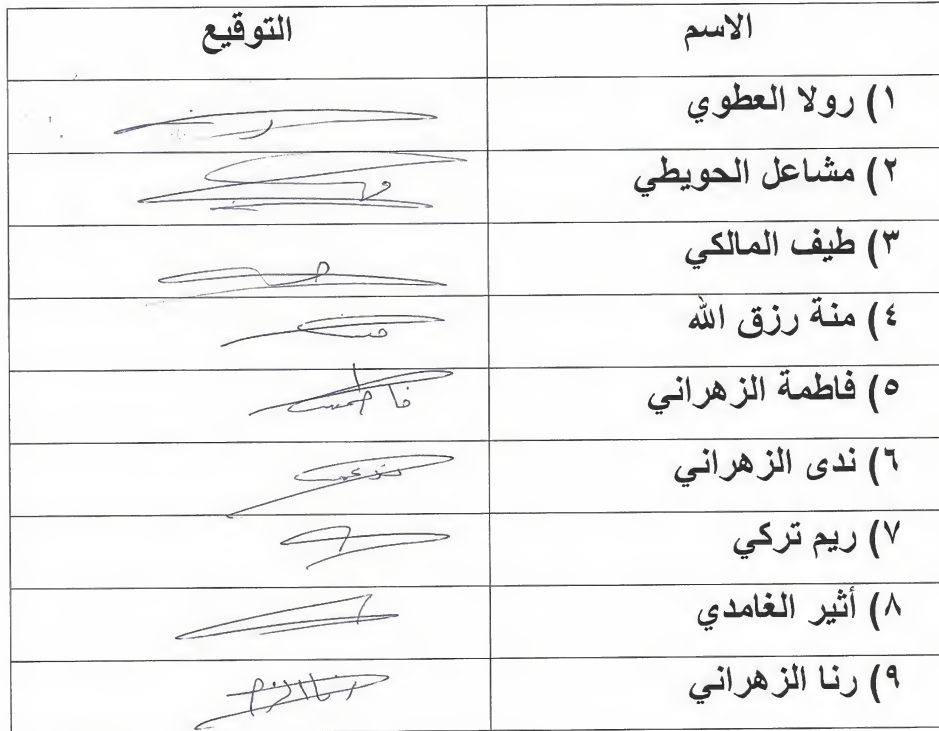 الاسم التوقيع
١) رولا العطوي
٢) مشاعل الحويطي
٣) طيف المالكي
٤) منة رزق الله
٥) فاطمة الزهراني فاطمة
٦) ندى الزهراني
٧) ريم تركي
٨) أثير الغامدي
٩) رنا الزهراني